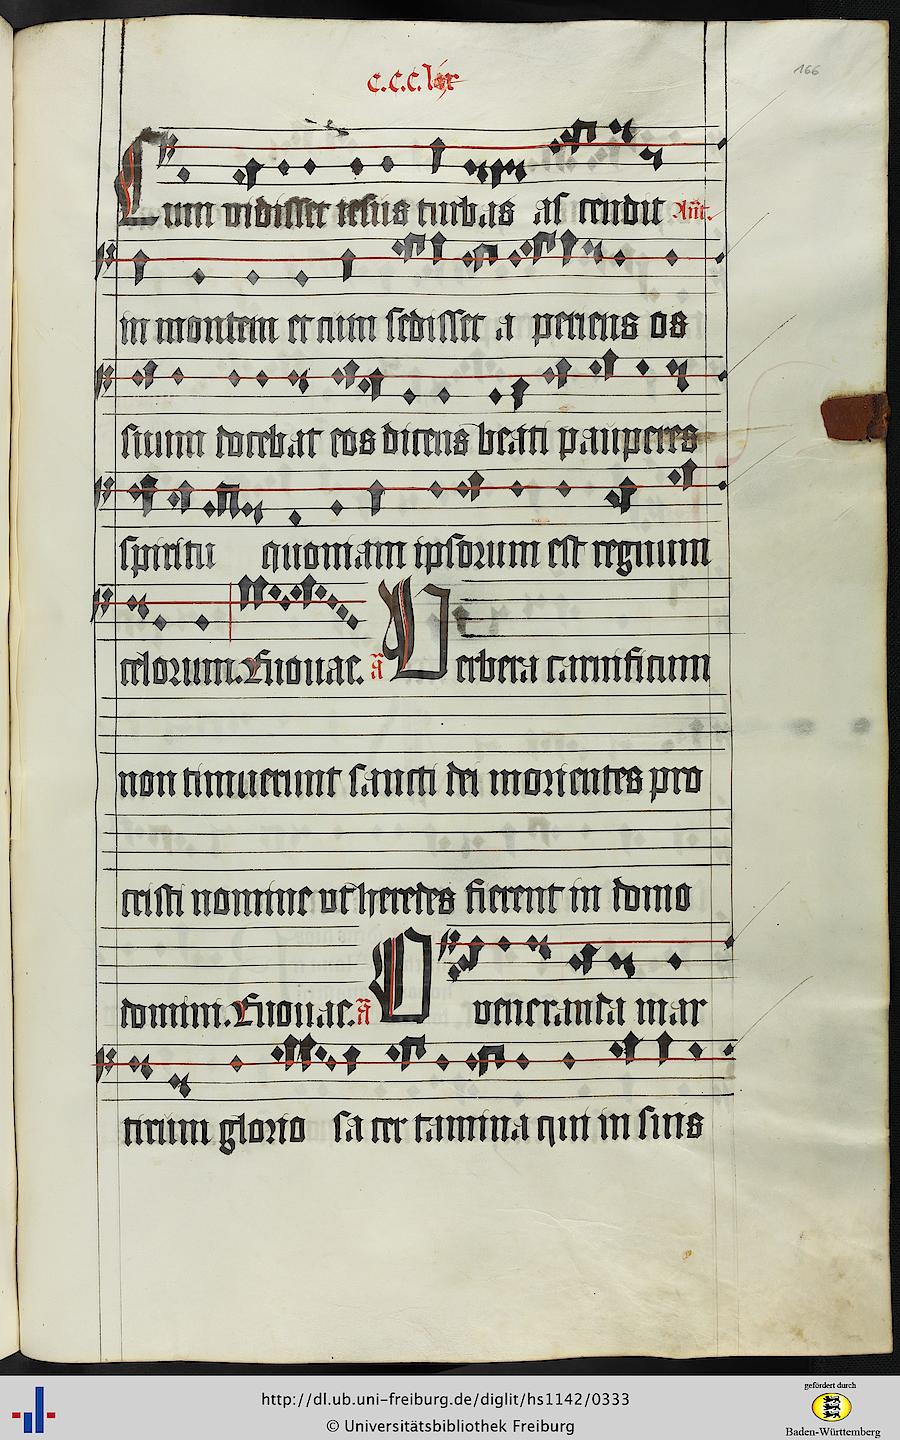 c.c.c.lix
166
Cum vidisset iesus turbas ascendit Añt.
in montem et cum sedisset aperiens os
suum docebat eos dicens beati pauperes
spiritu quoniam ipsorum est regnum
celorum. Euouae. a Verbera carnificum
non timuerunt sancti dei morientes pro
cristi nomine vt heredes fierent in domo
domini. Euouae. a O veneranda mar
tirum gloriosa certamina qui in suis
http://dl.ub.uni-freiburg.de/diglit/hs1142/0333
© Universitätsbibliothek Freiburg
gefördert durch
Baden-Württemberg